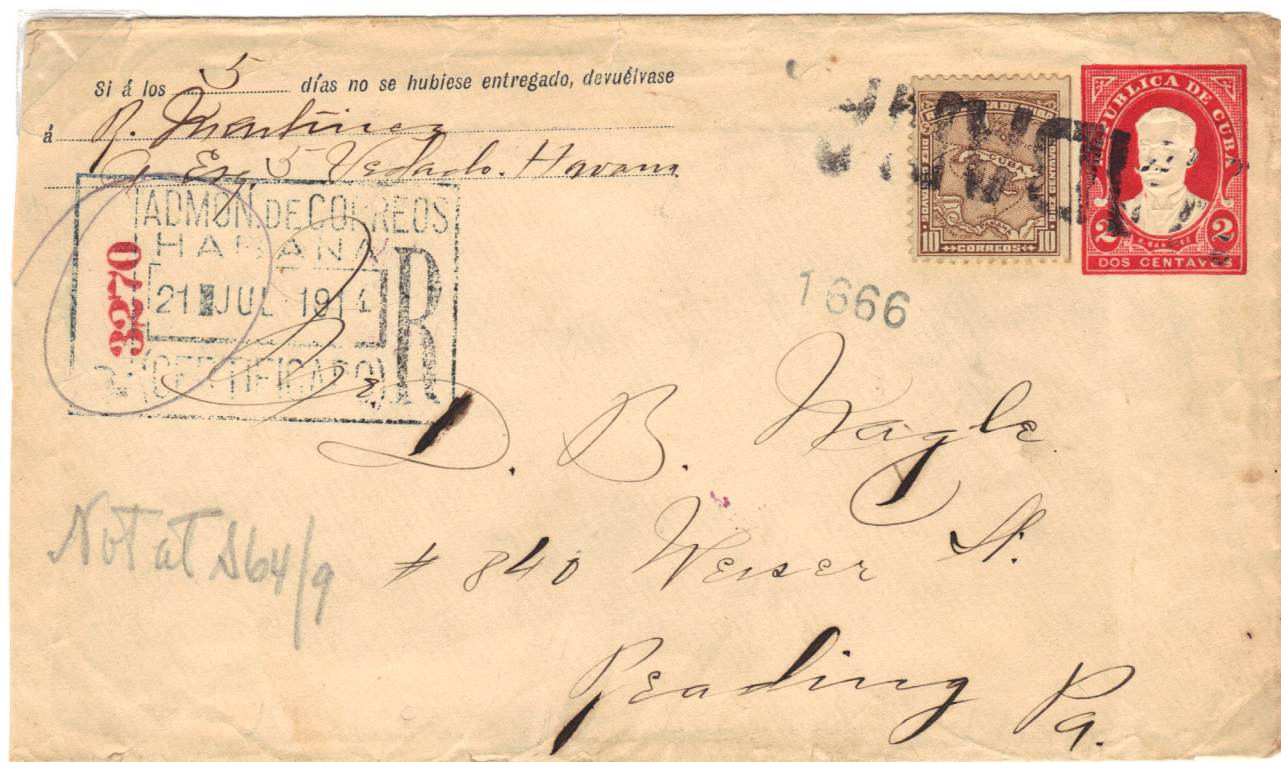 Si á los 5 días no se hubiese entregado, devuélvase
á R. Martinez
Esq 5 Vedado. Havana
ADMON. DE CORREOS
HABANA
21 JUL 1914
(CERTIFICADO)
R
3270
REPUBLICA DE CUBA
2 2
DOS CENTAVOS
CUBA
10 CORREOS 10
1666
D. B. Nagle
# 840 Weiser St.
Reading Pa.
Not at 864/9